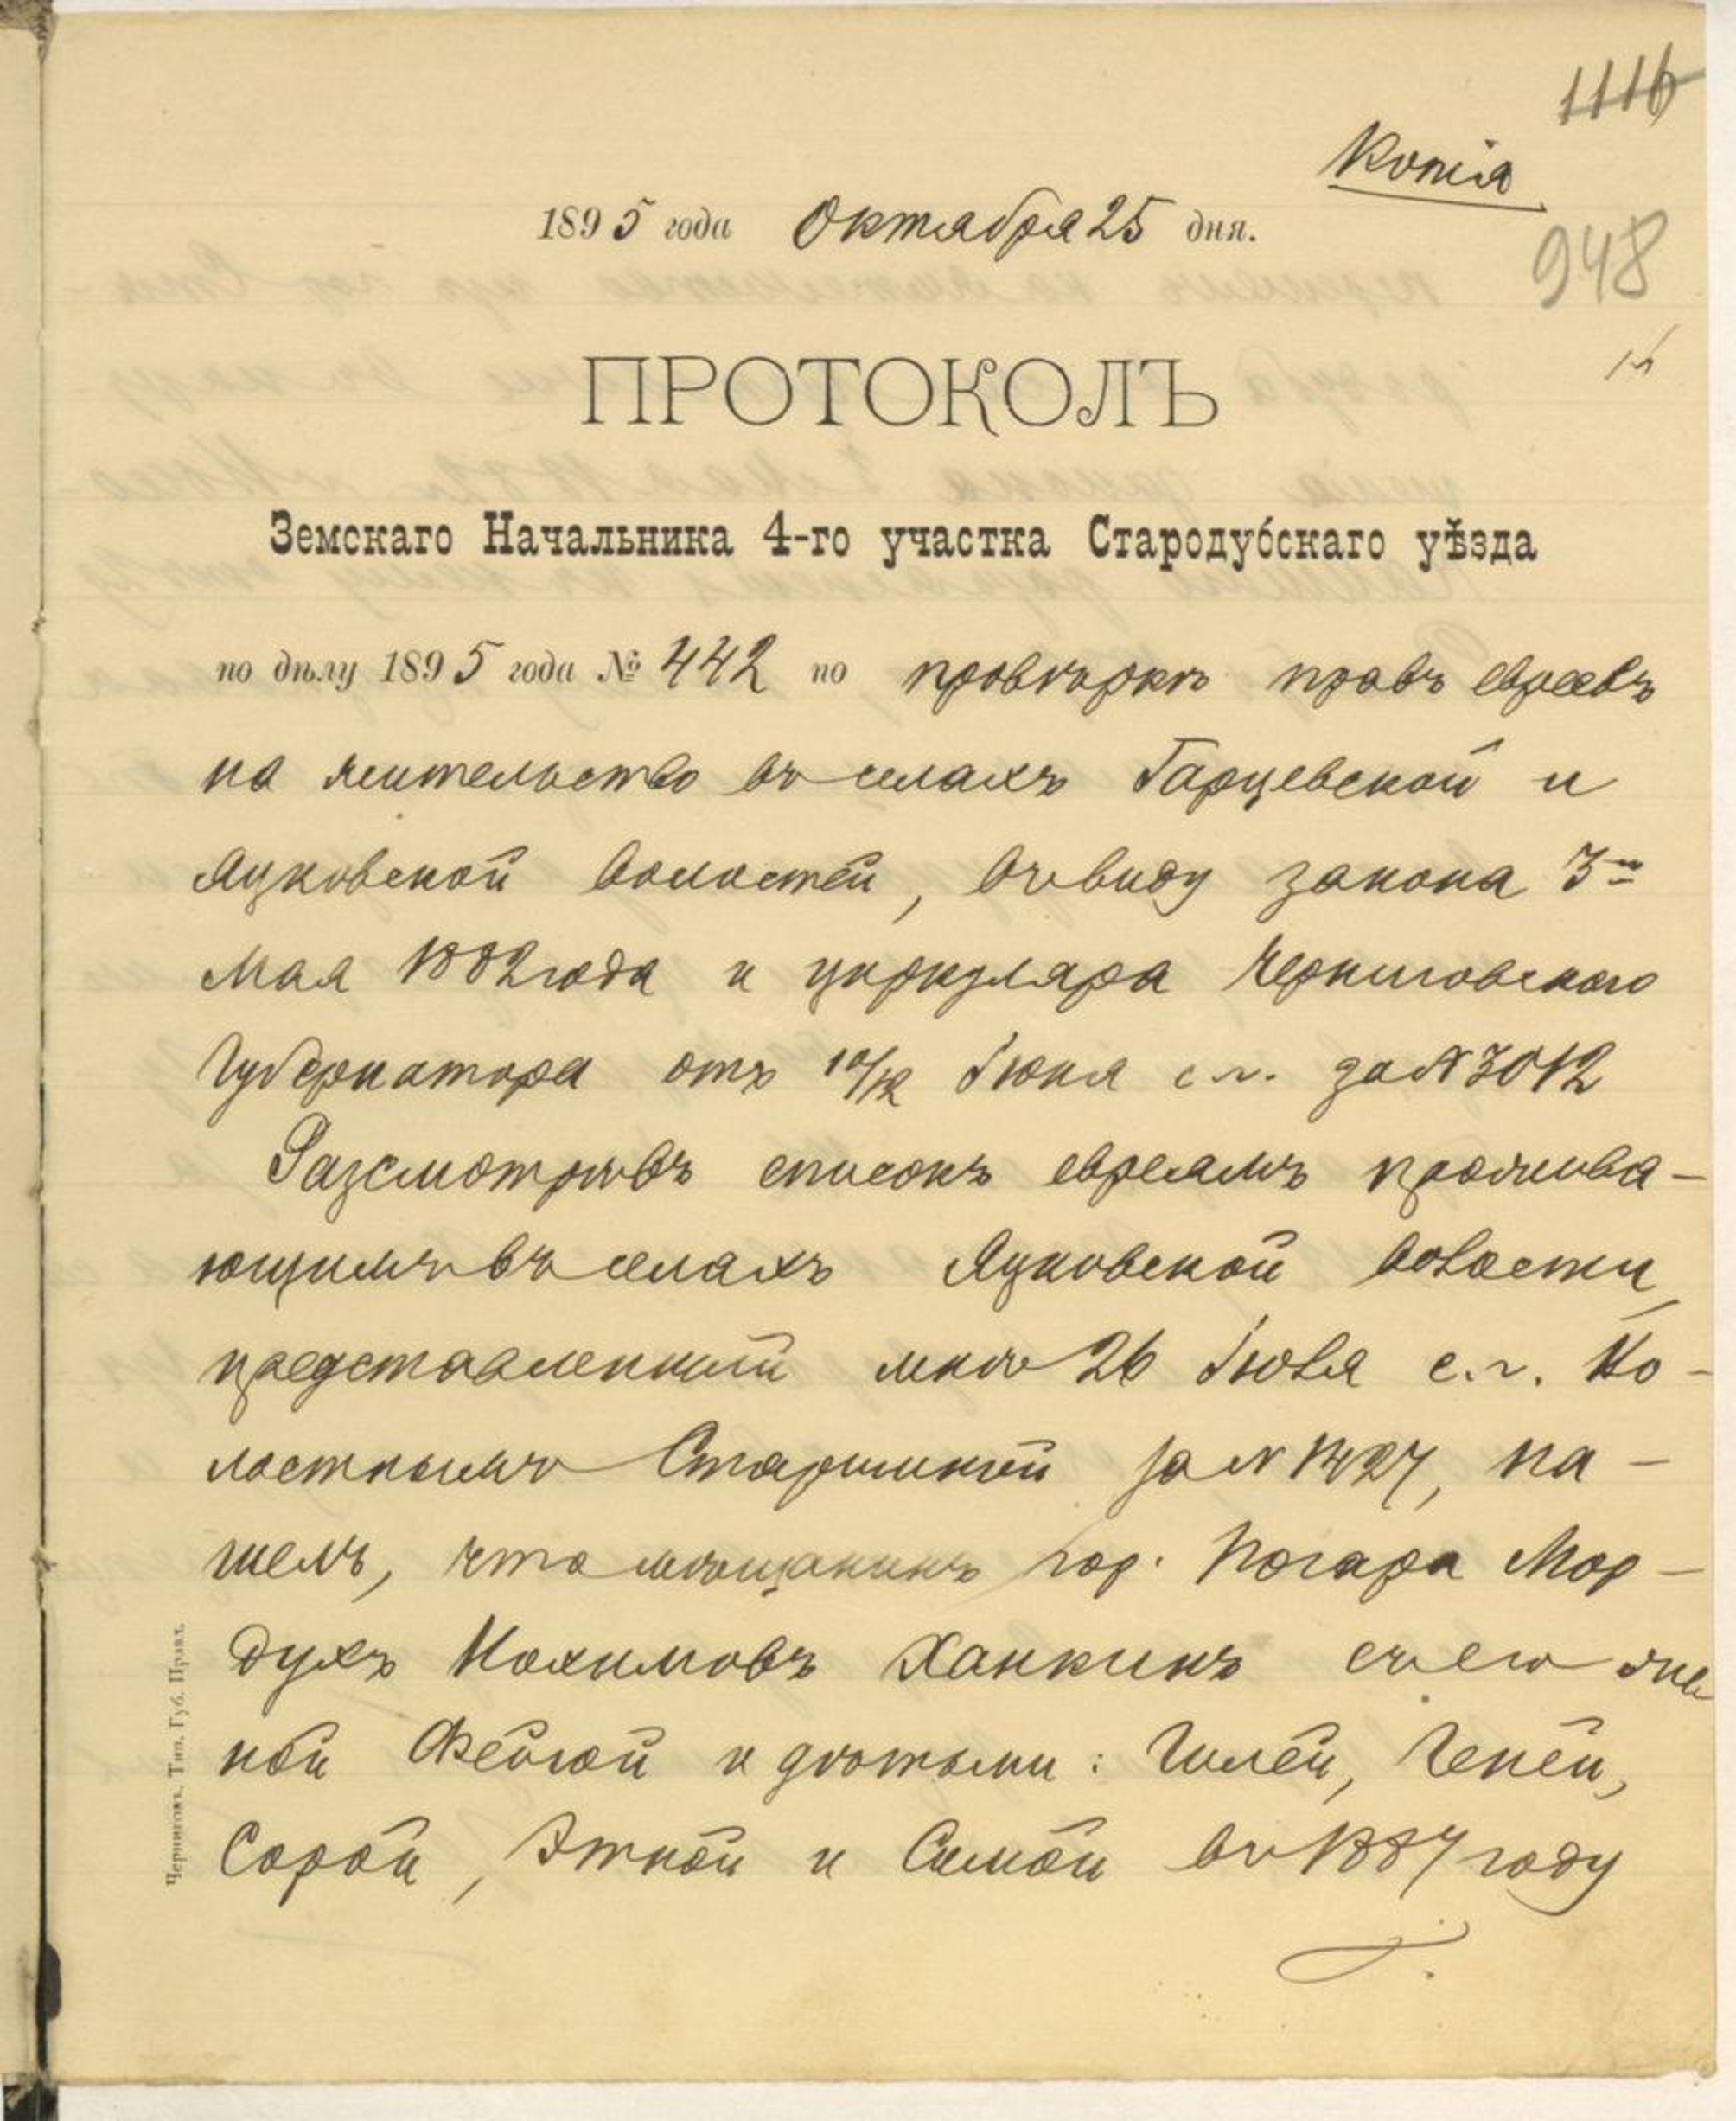 1116
Копія
1895 года Октября 25 дня.
948
ПРОТОКОЛЪ
Земскаго Начальника 4-го участка Стародубскаго уѣзда
по дѣлу 1895 года № 442 по провѣркѣ правъ евреевъ
на жительство въ селахъ Гарцевской и
Яцковской волостей, въ виду закона 3го
Мая 1882 года и циркуляра Черниговскаго
Губернатора отъ 10/12 Іюня с г. за № 3012
Разсмотрѣвъ списокъ евреямъ прожива-
ющимъ въ селахъ Яцковской волости,
представленный мнѣ 26 Іюля с. г. Во-
лостнымъ Старшиной за № 1427, на-
шелъ, что мѣщанинъ гор. Погара Мор-
духъ Нохимовъ Ханкинъ съ его же
ной Фейгой и дѣтьми: Гилей, Геней,
Сорой, Этной и Симой въ 1887 году
Черниговъ. Тип. Губ. Правл.